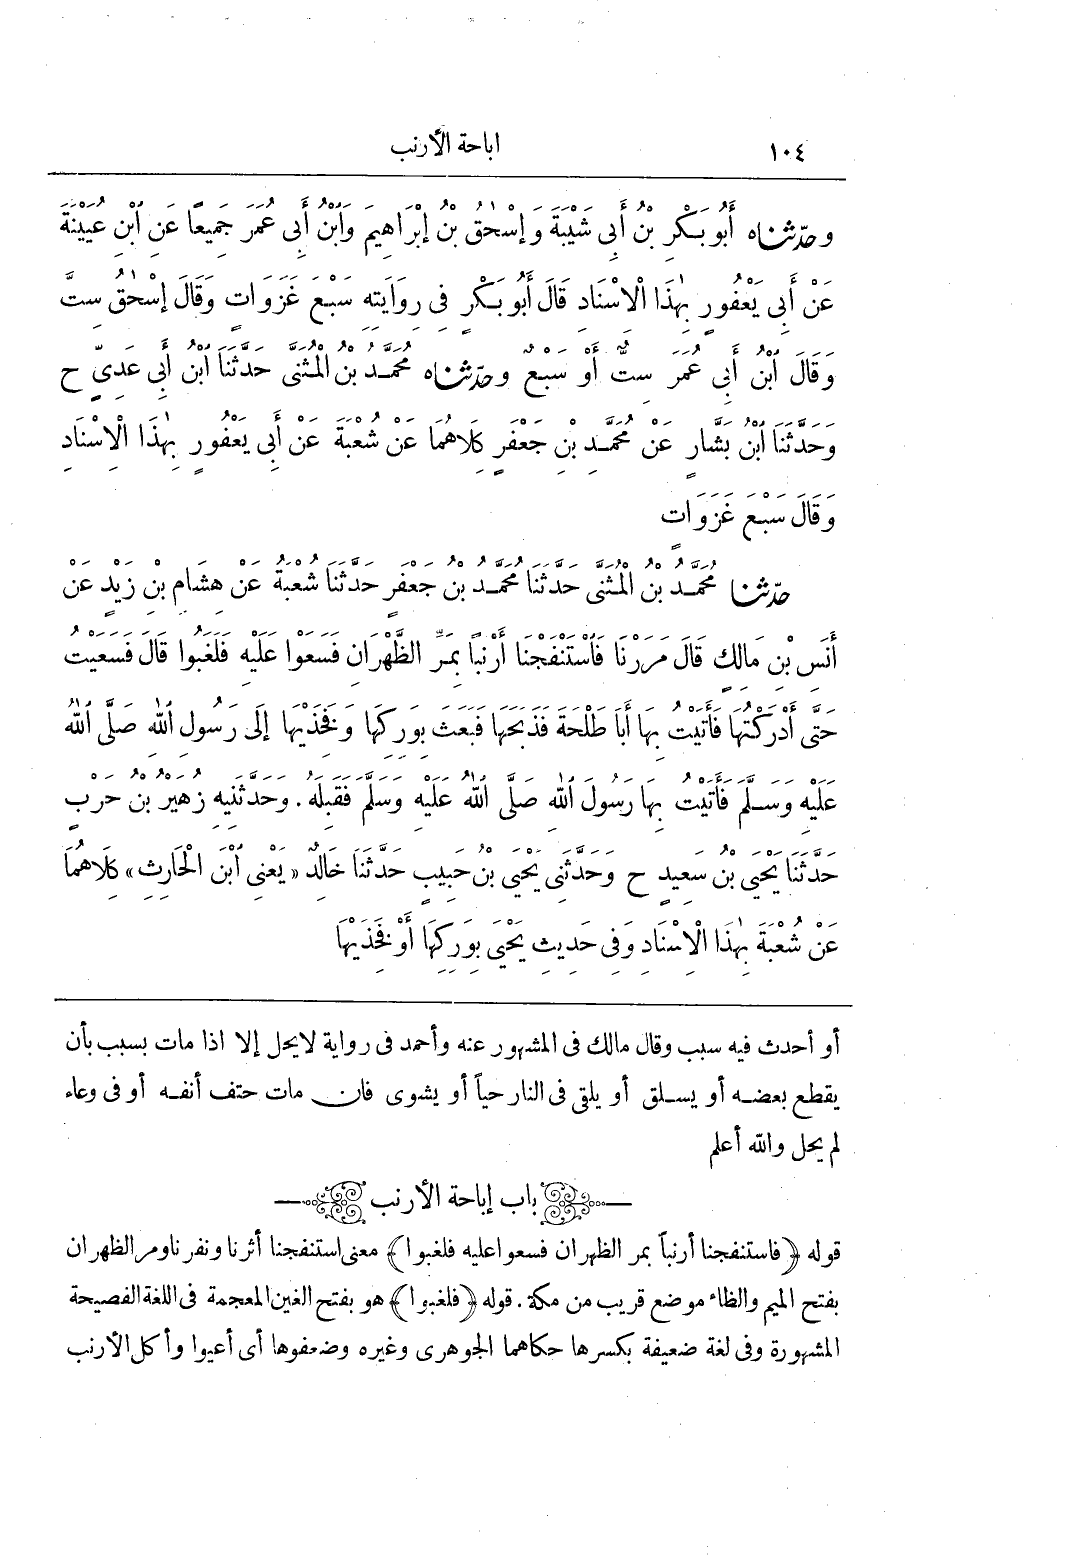 ١٠٤ اباحة الأرنب
وحدّثناه أَبُو بَكْرِ بْنُ أَبِى شَيْبَةَ وَإِسْحٰقُ بْنُ إِبْرَاهِيمَ وَابْنُ أَبِى عُمَرَ جَمِيعًا عَنِ ابْنِ عُيَيْنَةَ
عَنْ أَبِى يَعْفُورٍ بِهٰذَا الْاِسْنَادِ قَالَ أَبُو بَكْرٍ فِى رِوَايَتِهِ سَبْعَ غَزَوَاتٍ وَقَالَ إِسْحٰقُ سِتَّ
وَقَالَ ابْنُ أَبِى عُمَرَ سِتٌّ أَوْ سَبْعٌ وحدّثناه مُحَمَّدُ بْنُ الْمُثَنَّى حَدَّثَنَا ابْنُ أَبِى عَدِىٍّ ح
وَحَدَّثَنَا ابْنُ بَشَّارٍ عَنْ مُحَمَّدِ بْنِ جَعْفَرٍ كِلَاهُمَا عَنْ شُعْبَةَ عَنْ أَبِى يَعْفُورٍ بِهٰذَا الْاِسْنَادِ
وَقَالَ سَبْعَ غَزَوَاتٍ
حدّثنا مُحَمَّدُ بْنُ الْمُثَنَّى حَدَّثَنَا مُحَمَّدُ بْنُ جَعْفَرٍ حَدَّثَنَا شُعْبَةُ عَنْ هِشَامِ بْنِ زَيْدٍ عَنْ
أَنَسِ بْنِ مَالِكٍ قَالَ مَرَرْنَا فَاسْتَنْفَجْنَا أَرْنَبًا بِمَرِّ الظَّهْرَانِ فَسَعَوْا عَلَيْهِ فَلَغَبُوا قَالَ فَسَعَيْتُ
حَتَّى أَدْرَكْتُهَا فَأَتَيْتُ بِهَا أَبَا طَلْحَةَ فَذَبَحَهَا فَبَعَثَ بِوَرِكِهَا وَفَخِذَيْهَا إِلَى رَسُولِ اللّٰهِ صَلَّى اللّٰهُ
عَلَيْهِ وَسَلَّمَ فَأَتَيْتُ بِهَا رَسُولَ اللّٰهِ صَلَّى اللّٰهُ عَلَيْهِ وَسَلَّمَ فَقَبِلَهُ. وَحَدَّثَنِيهِ زُهَيْرُ بْنُ حَرْبٍ
حَدَّثَنَا يَحْيَى بْنُ سَعِيدٍ ح وَحَدَّثَنِى يَحْيَى بْنُ حَبِيبٍ حَدَّثَنَا خَالِدٌ «يَعْنِى ابْنَ الْحَارِثِ» كِلَاهُمَا
عَنْ شُعْبَةَ بِهٰذَا الْاِسْنَادِ وَفِى حَدِيثِ يَحْيَى بِوَرِكِهَا أَوْ فَخِذَيْهَا
أو أحدث فيه سبب وقال مالك فى المشهور عنه وأحمد فى رواية لايحل إلا اذا مات بسبب بأن
يقطع بعضه أو يسلق أو يلقى فى النار حياً أو يشوى فان مات حتف أنفه أو فى وعاء
لم يحل والله أعلم
باب إباحة الأرنب
قوله ﴿فاستنفجنا أرنباً بمر الظهران فسعوا عليه فلغبوا﴾ معنى استنفجنا أثرنا ونفرنا ومر الظهران
بفتح الميم والظاء موضع قريب من مكة. قوله ﴿فلغبوا﴾ هو بفتح الغين المعجمة فى اللغة الفصيحة
المشهورة وفى لغة ضعيفة بكسرها حكاهما الجوهرى وغيره وضعفوها أى أعيوا وأكل الأرنب